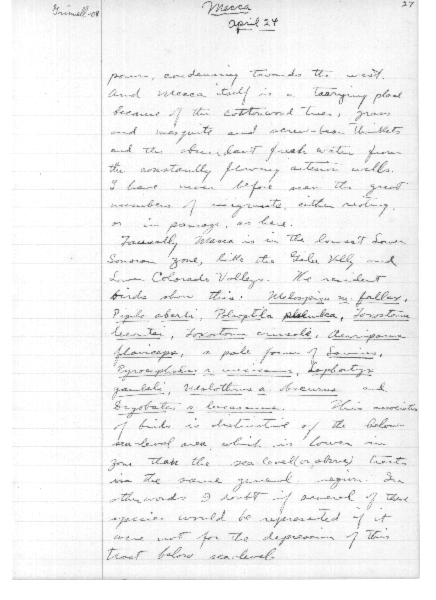 Grinnell-08
Mecca
27
April 24
power, condensing towards the west.
And Mecca itself is a tarrying place
because of the cottonwood trees, grass
and mesquite and screw-bean thickets
and the abundant fresh water from
the constantly flowing artesian wells.
I have never before seen the great
numbers of migrants, either resting,
or in passage, as here.
Faunally Mecca is in the lowest Lower
Sonoran zone, like the Gila Vlly and
Lower Colorado Valleys. The resident
birds show this. Melospiza m. fallax,
Pipilo aberti, Polioptila plumbea, Toxostoma
lecontei, Toxostoma crissale, Auriparus
flaviceps, a pale form of Lanius,
Pyrocephalus r. mexicanus, Lophortyx
gambeli, Molothrus a obscurus and
Dryobates s. lucasanus. This association
of birds is distinctive of the below
sea-level area, which is lower in
zone than the sea level (or above) tracts
in the same general region. In
other words I doubt if several of these
species would be represented if it
were not for the depression of this
tract below sea-level.